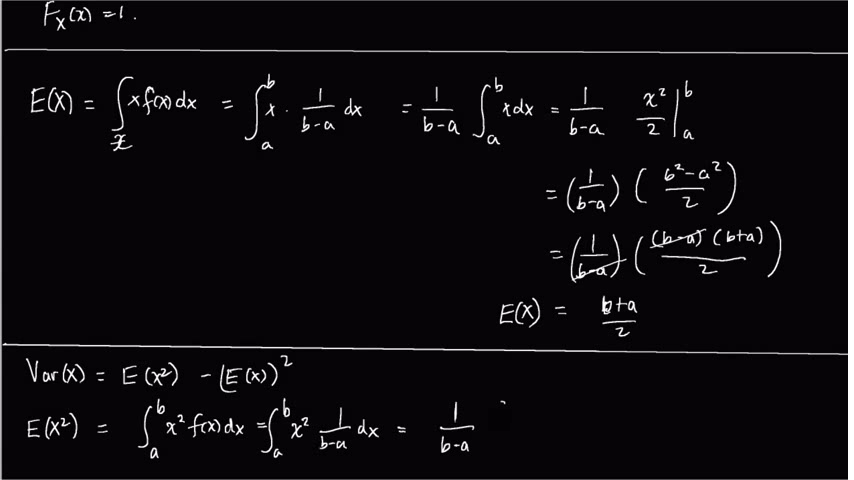 F_X(x) = 1.
E(X) = ∫_𝓧 x f(x) dx = ∫_a^b x · 1/(b-a) dx = 1/(b-a) ∫_a^b x dx = 1/(b-a) x²/2 |_a^b
= (1/(b-a)) ((b² - a²)/2)
= (1/(b-a)) ((b-a)(b+a)/2)
E(X) = (b+a)/2
Var(X) = E(X²) - (E(X))²
E(X²) = ∫_a^b x² f(x) dx = ∫_a^b x² 1/(b-a) dx = 1/(b-a)